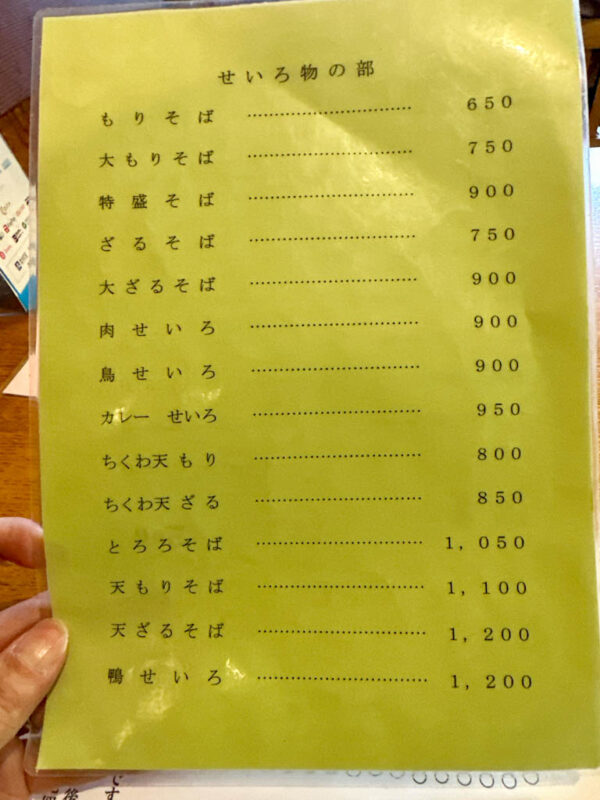 せいろ物の部
もりそば ……………………………… 650
大もりそば ……………………………… 750
特盛そば ……………………………… 900
ざるそば ……………………………… 750
大ざるそば ……………………………… 900
肉せいろ ……………………………… 900
鳥せいろ ……………………………… 900
カレーせいろ ……………………………… 950
ちくわ天もり ……………………………… 800
ちくわ天ざる ……………………………… 850
とろろそば ……………………………… 1,050
天もりそば ……………………………… 1,100
天ざるそば ……………………………… 1,200
鴨せいろ ……………………………… 1,200